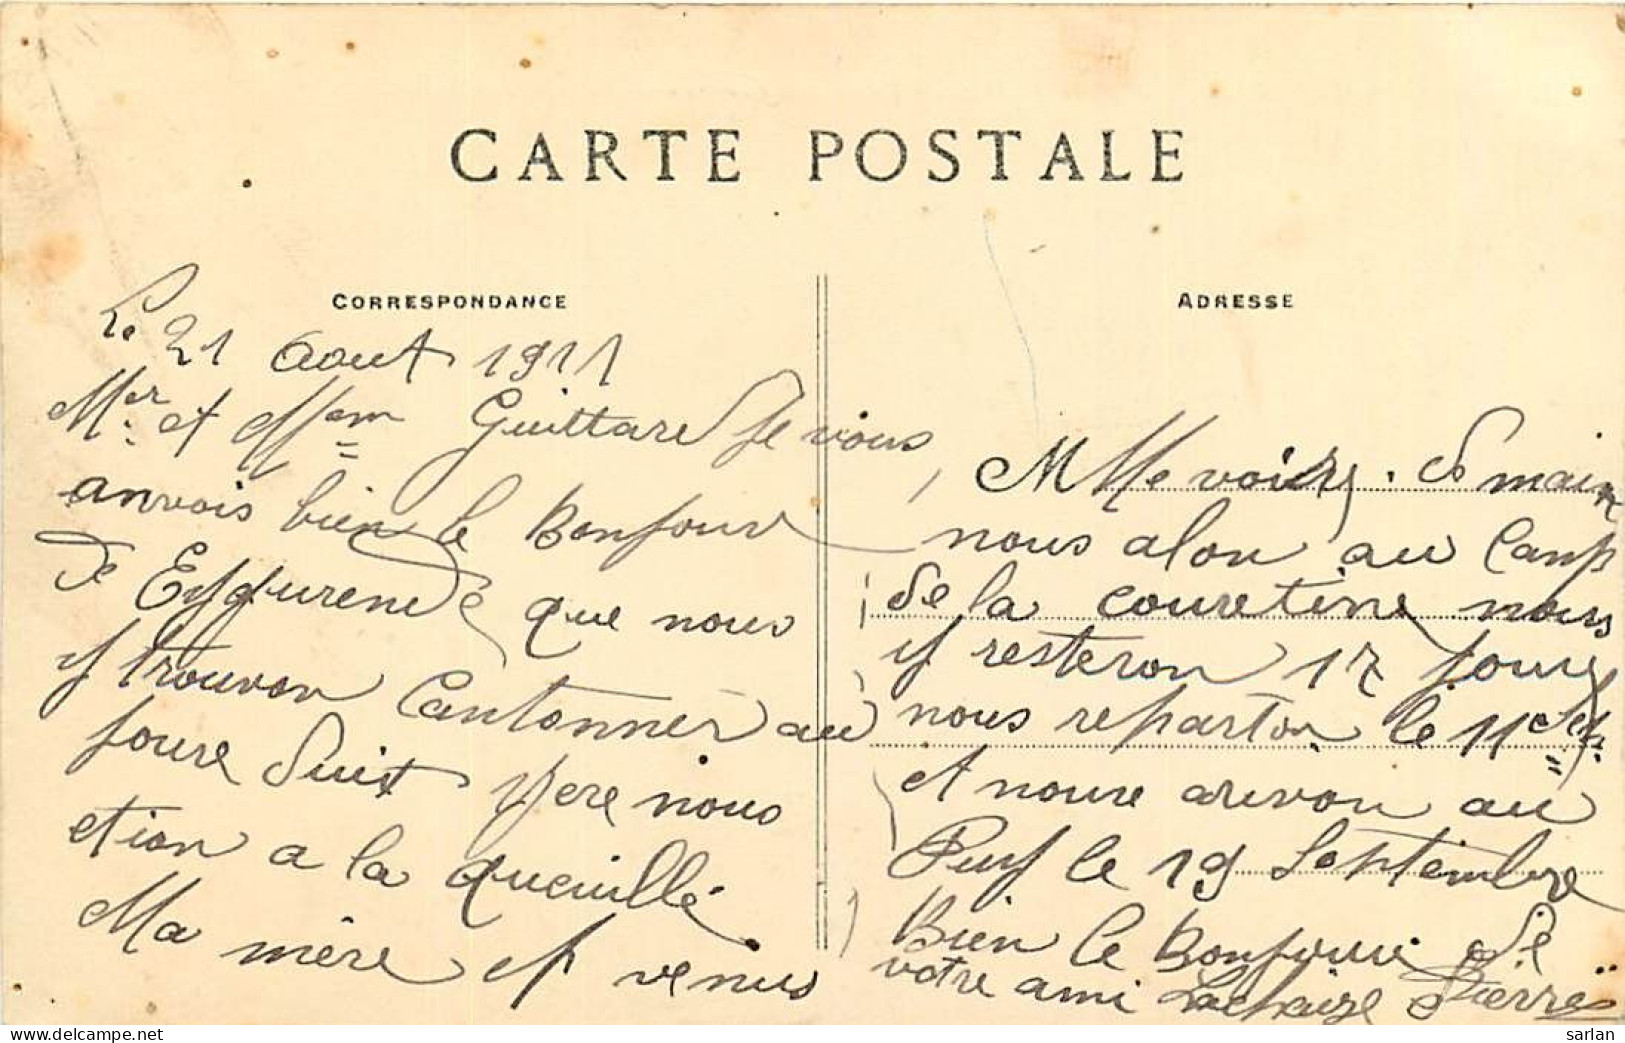 CARTE POSTALE
CORRESPONDANCE
Le 21 Aout 1911
Mer et Mem Guittard Je vous
anvois bien le Bonjour
de Eygurende que nous
y trouvon Cantonner au
joure Duit yere nous
etion a la queuille
Ma mère et venus
ADRESSE
Me voire. De main
nous alon au Camp
de la couretine nous
y resteron 17 joure
nous reparton le 11 Sep
et noure arivon au
Puy le 19 Septembre
Bien le Bonjoure de
votre ami Lachaize Pierre
sarlan